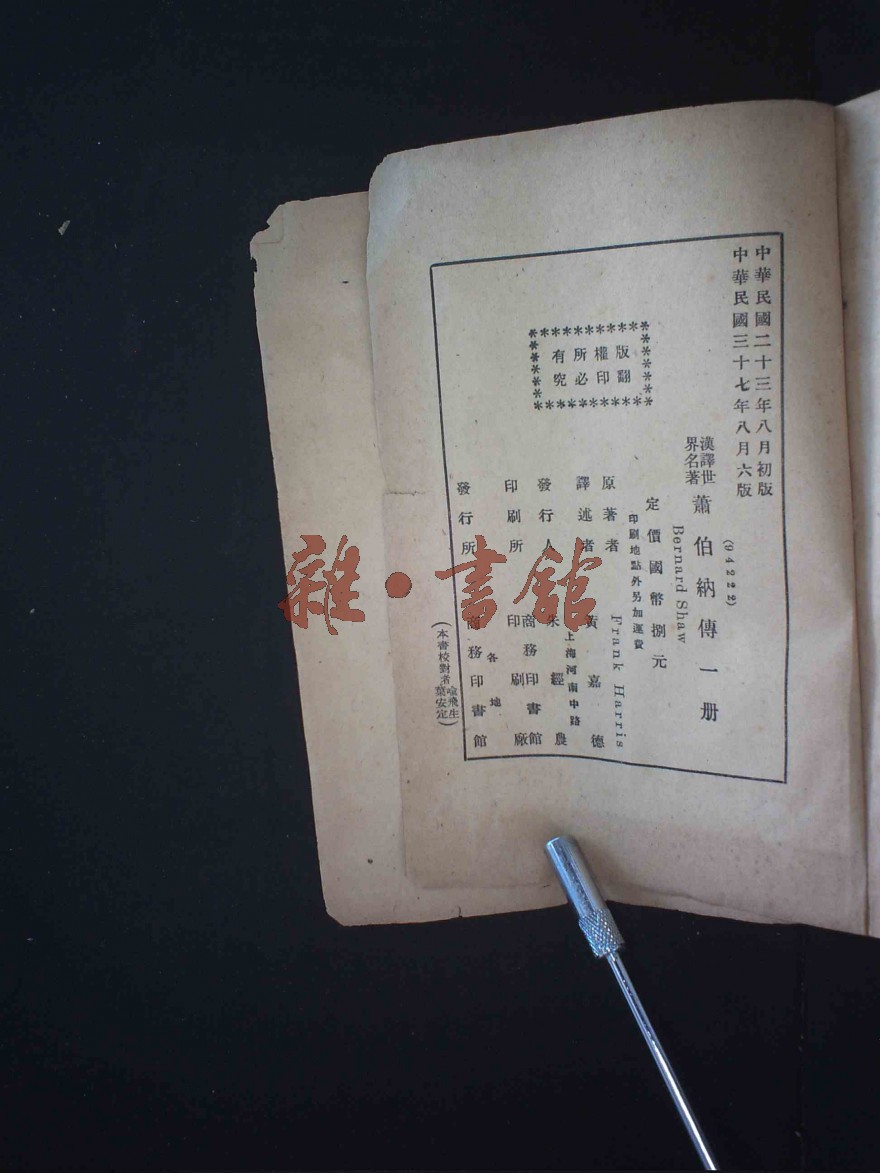 中華民國二十三年八月初版
中華民國三十七年八月六版
(94222)
漢譯世界名著 蕭伯納傳一册
Bernard Shaw
定價國幣捌元
印刷地點外另加運費
版權所有
翻印必究
原著者 Frank Harris
譯述者 黃嘉德
上海河南中路
發行人 朱經農
印刷所 商務印書館印刷廠
各地
發行所 商務印書館
(本書校對者喻飛生 葉安定)
雜·書館